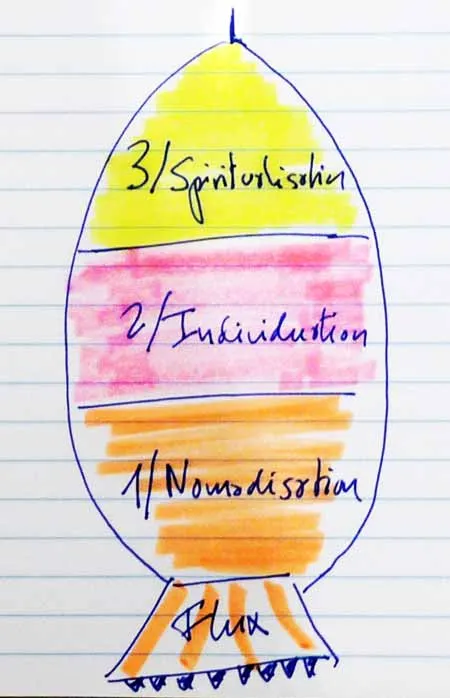 3/Spiritualisation
2/Individuation
1/Nomadisation
Flux